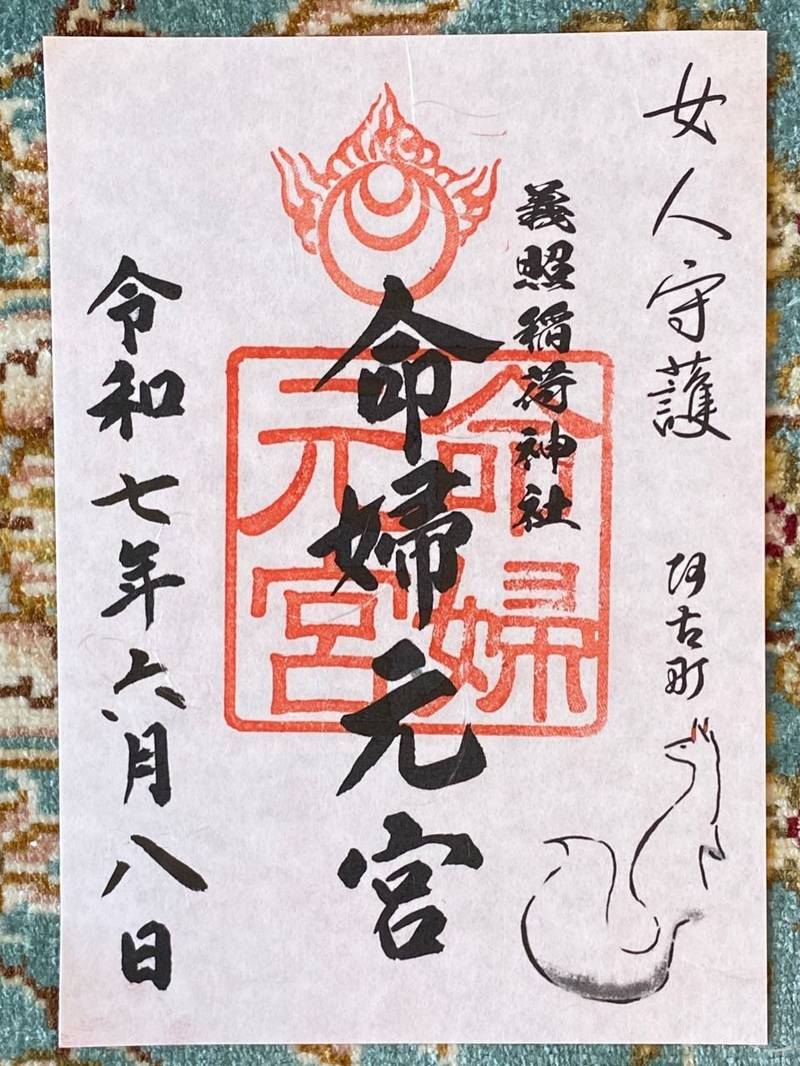 女人守護
阿古町
義照稲荷神社
命婦元宮
命婦
元宮
令和七年六月八日